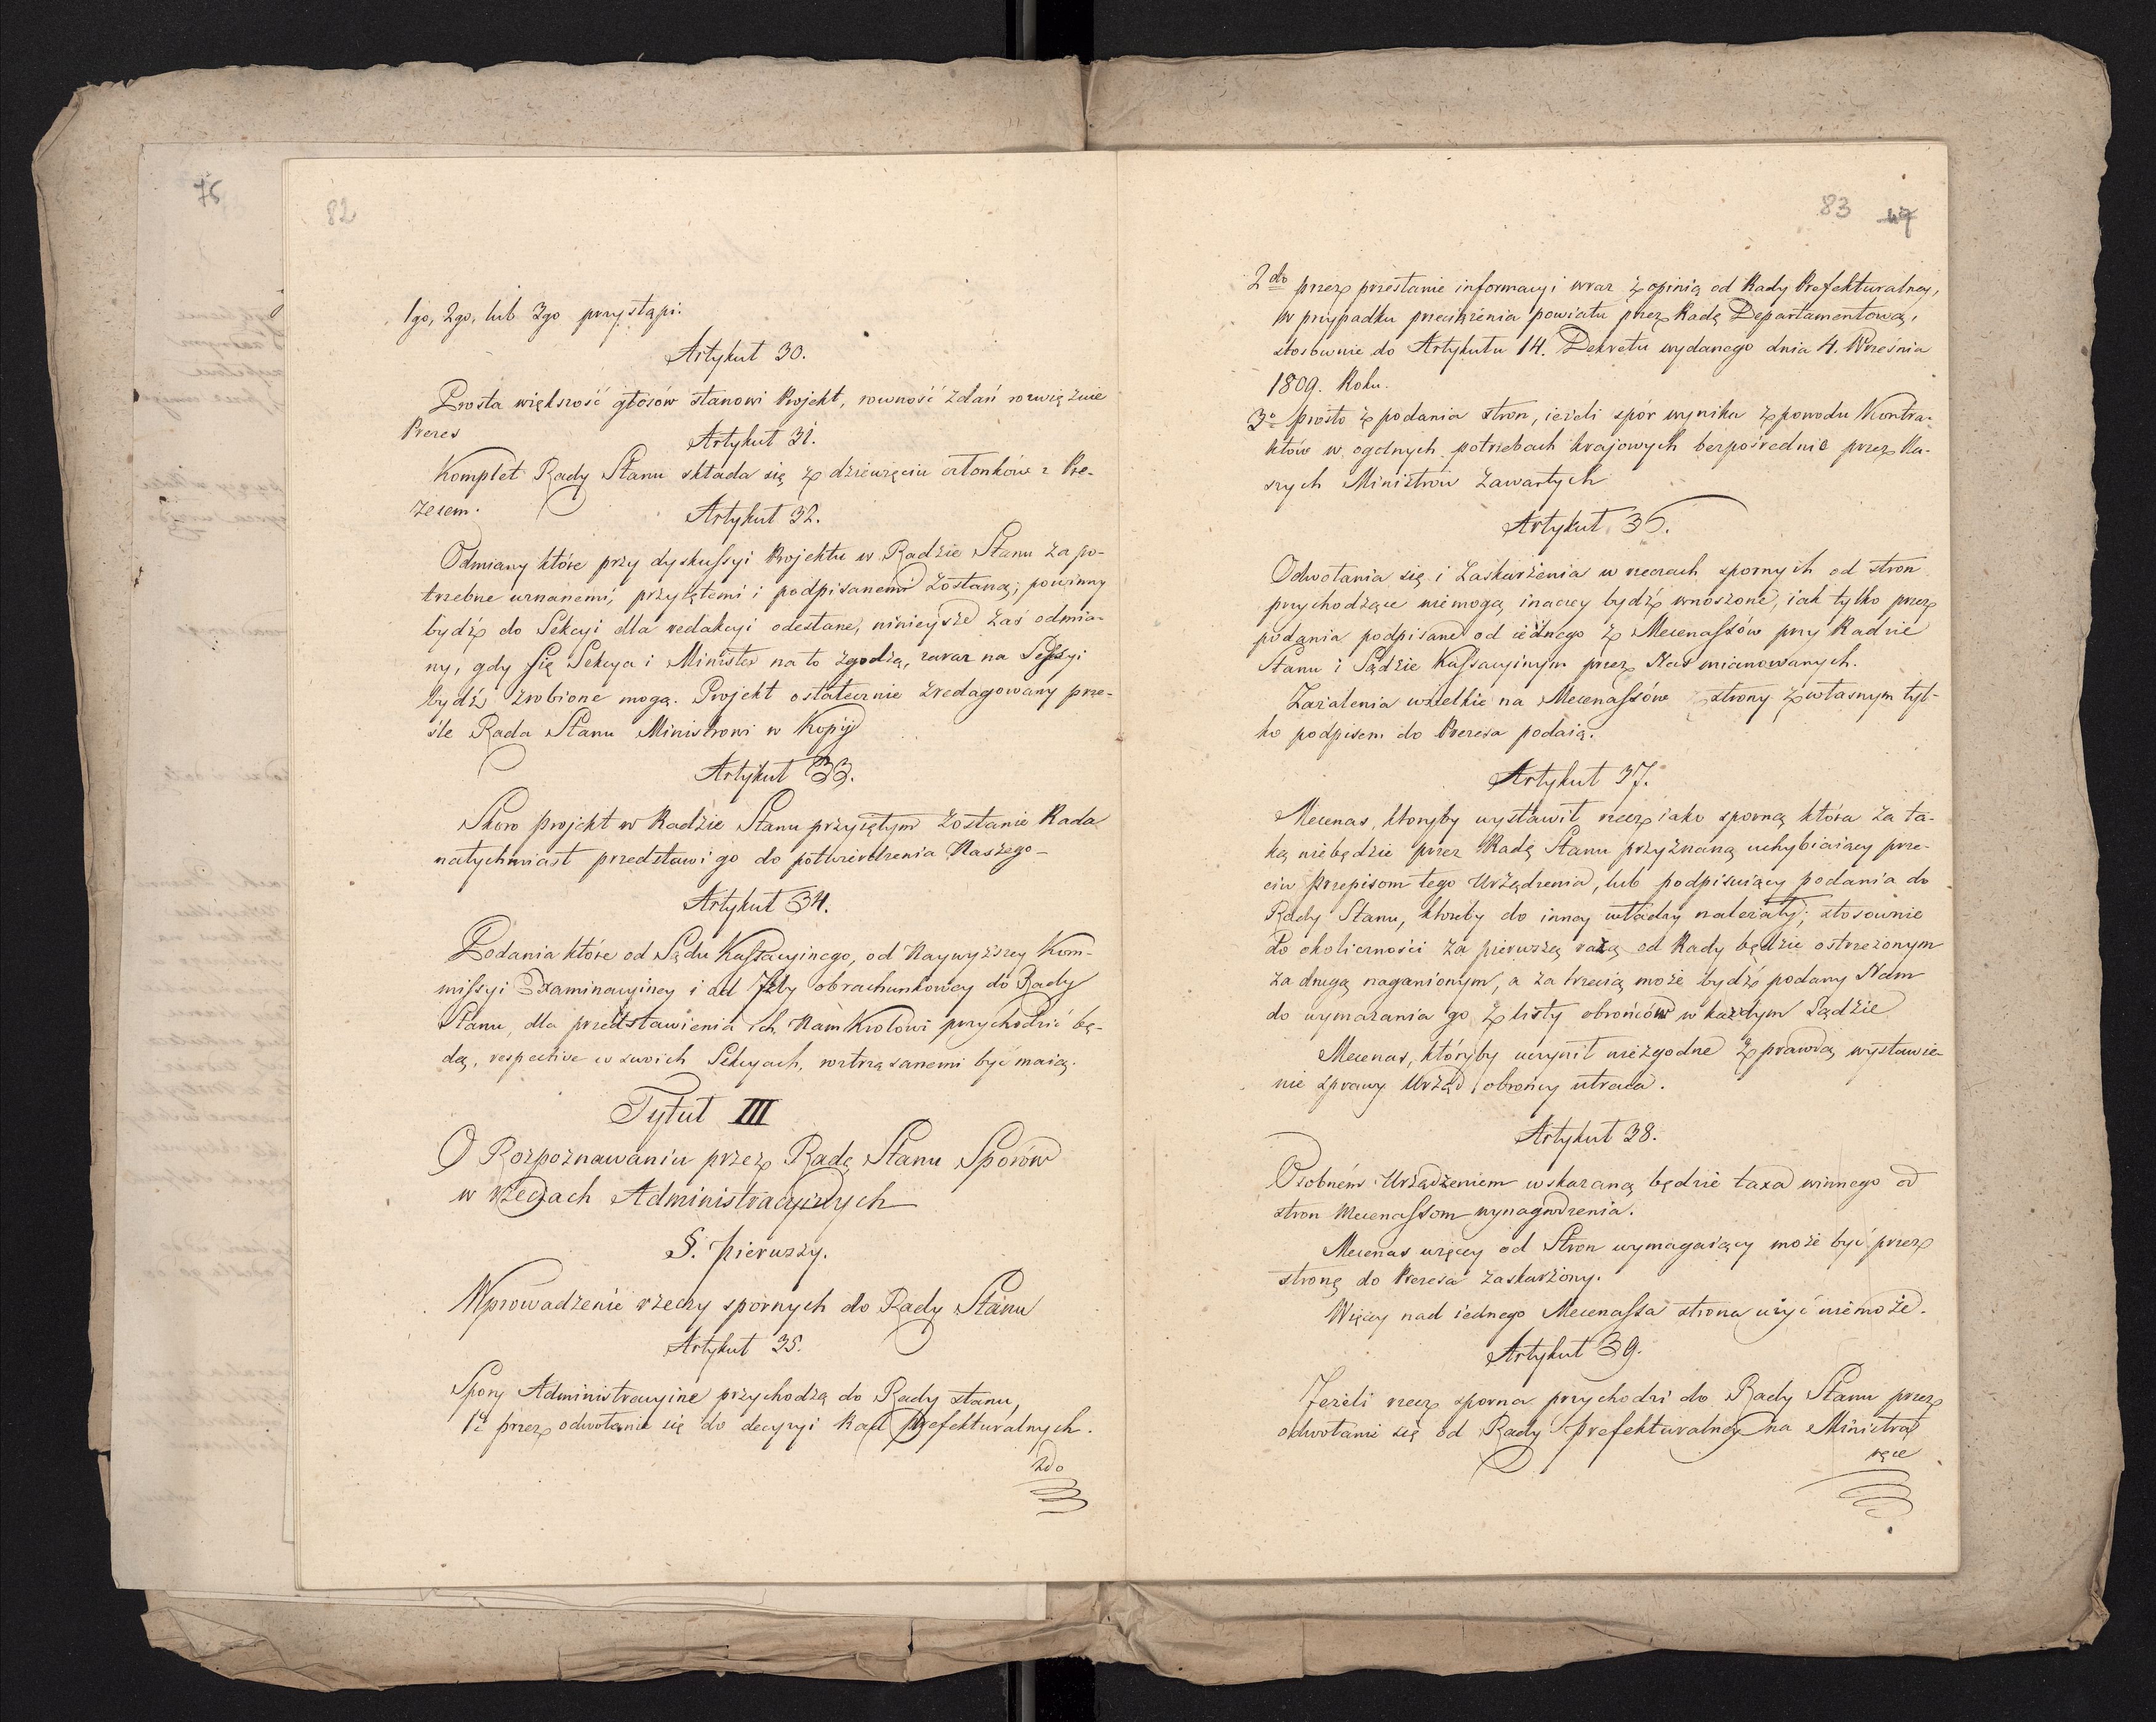 75
82
1go, 2go, lub 3go przystąpi.
Artykuł 30.
Prosta większość głosów stanowi Projekt, rowność zdań rozwięzuie
Prezes
Artykuł 31.
Komplet Rady Stanu składa się z dziewięciu członków z Pre-
zesem.
Artykuł 32.
Odmiany które przy dyskussyi Projektu w Radzie Stanu za po-
trzebne uznanemi, przyiętemi i podpisanemi zostaną; powinny
bydź do Sekcyi dla redakcyi odesłane, ninieysze zaś odmia-
ny, gdy się Sekcya i Minister na to zgodzą, zaraz na Sessyi
bydź zrobione mogą. Projekt ostatecznie zredagowany prze-
śle Rada Stanu Ministrowi w Kopij
Artykuł 33.
Skoro projekt w Radzie Stanu przyiętym zostanie Rada
natychmiast przedstawi go do potwierdzenia Naszego
Artykuł 34.
Podania które od Sądu Kassacyinego, od Naywyższey Kom-
missyi Examinacyiney i od Izby obrachunkowey do Rady
Stanu, dla przedstawienia ich Nam Krolowi przychodzić bę-
dą, respective w swoich Sekcyach, roztrząsanemi być maią.
Tytuł III
O Rozpoznawaniu przez Radę Stanu Sporów
w rzeczach Administracyinych
§. pierwszy.
Wprowadzenie rzeczy spornych do Rady Stanu
Artykuł 35.
Spory Administracyine przychodzą do Rady stanu,
1o przez odwołanie się do decyzyi Rad prefekturalnych.
2do
83 47
2do przez przesłanie informacyi wraz z opinią od Rady Prefekturalney,
w przypadku przeciążenia powiatu przez Radę Departamentową,
stosownie do Artykułu 14. Dekretu wydanego dnia 4. Września
1809. Roku.
3o prosto z podania stron, ieżeli spór wynika z powodu Kontra-
któw w ogolnych potrzebach krajowych bezpośrednio przez Na-
szych Ministrów zawartych
Artykuł 36.
Odwołania się i Zaskarżenia w rzeczach spornych od stron
przychodzące niemogą inaczey bydź wnoszone, iak tylko przez
podania podpisane od iednego z Mecenassów przy Radzie
Stanu i Sądzie Kassacyinym przez Nas mianowanych.
Zażalenia wszelkie na Mecenassów strony z własnym tyl-
ko podpisem do Prezesa podaią.
Artykuł 37.
Mecenas, ktoryby wystawił rzecz iako sporną która za ta-
ką niebędzie przez Radę Stanu przyznaną uchybiaiący prze-
ciw przepisom tego Urządzenia, lub podpisuiący podania do
Rady Stanu, któreby do inney władzy należały; stosownie
do okoliczności za pierwszą razą od Rady będzie ostrzeżonym
za drugą naganionym, a za trzecią może bydź podany Nam
do wymazania go z listy obrońców w każdym Sądzie
Mecenas, któryby uczynił niezgodne z prawdą wystawie-
nie sprawy Urząd obrońcy utraca.
Artykuł 38.
Osobném Urządzeniem wskazaną będzie taxa winnego od
stron Mecenassom wynagrodzenia.
Mecenas więcey od Stron wymagaiący może być przez
stronę do Prezesa zaskarżony.
Więcey nad iednego Mecenassa strona użyć niemoże.
Artykuł 39.
Jeżeli rzecz sporna przychodzi do Rady Stanu przez
odwołanie się od Rady prefekturalney na Ministra
ręce